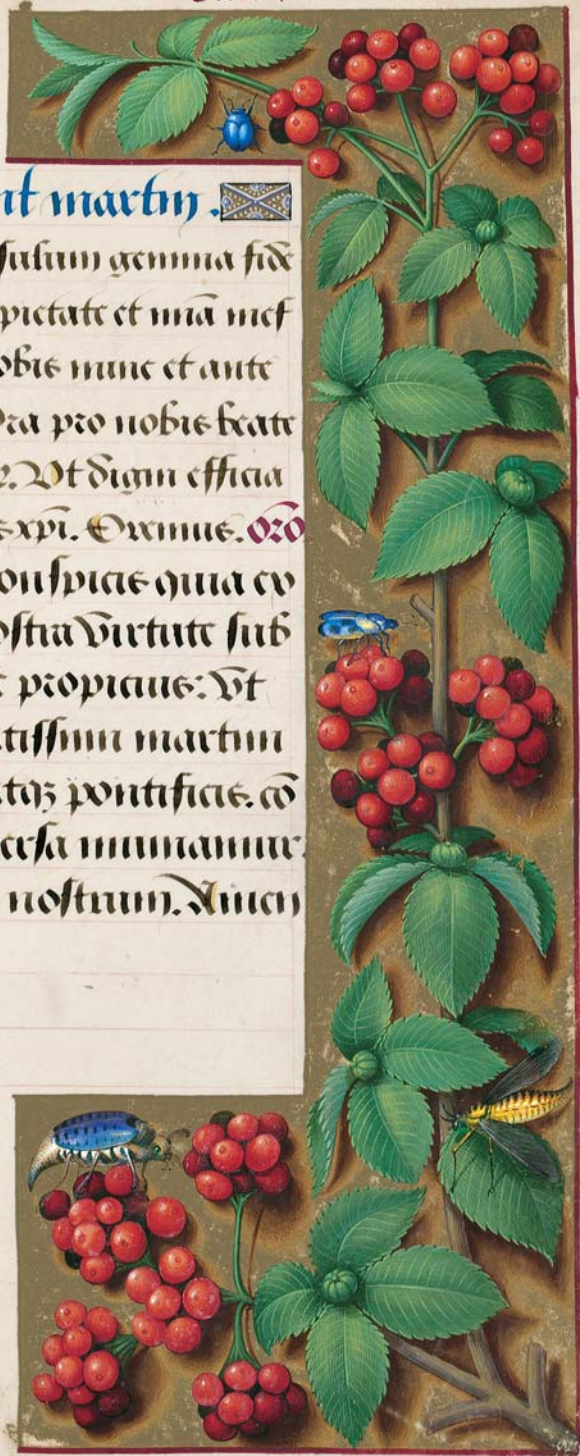 nt martin.
sulum gemma fide
pietate et mia mes
obis nunc et ante
Ora pro nobis beate
Vt digni efficia
xpi. Oremus. Oro
onspicis quia ex
ostra virtute sub
propicius: Vt
tissimi martini
atqz pontificis. co
ersa muniamur.
nostrum. Amen